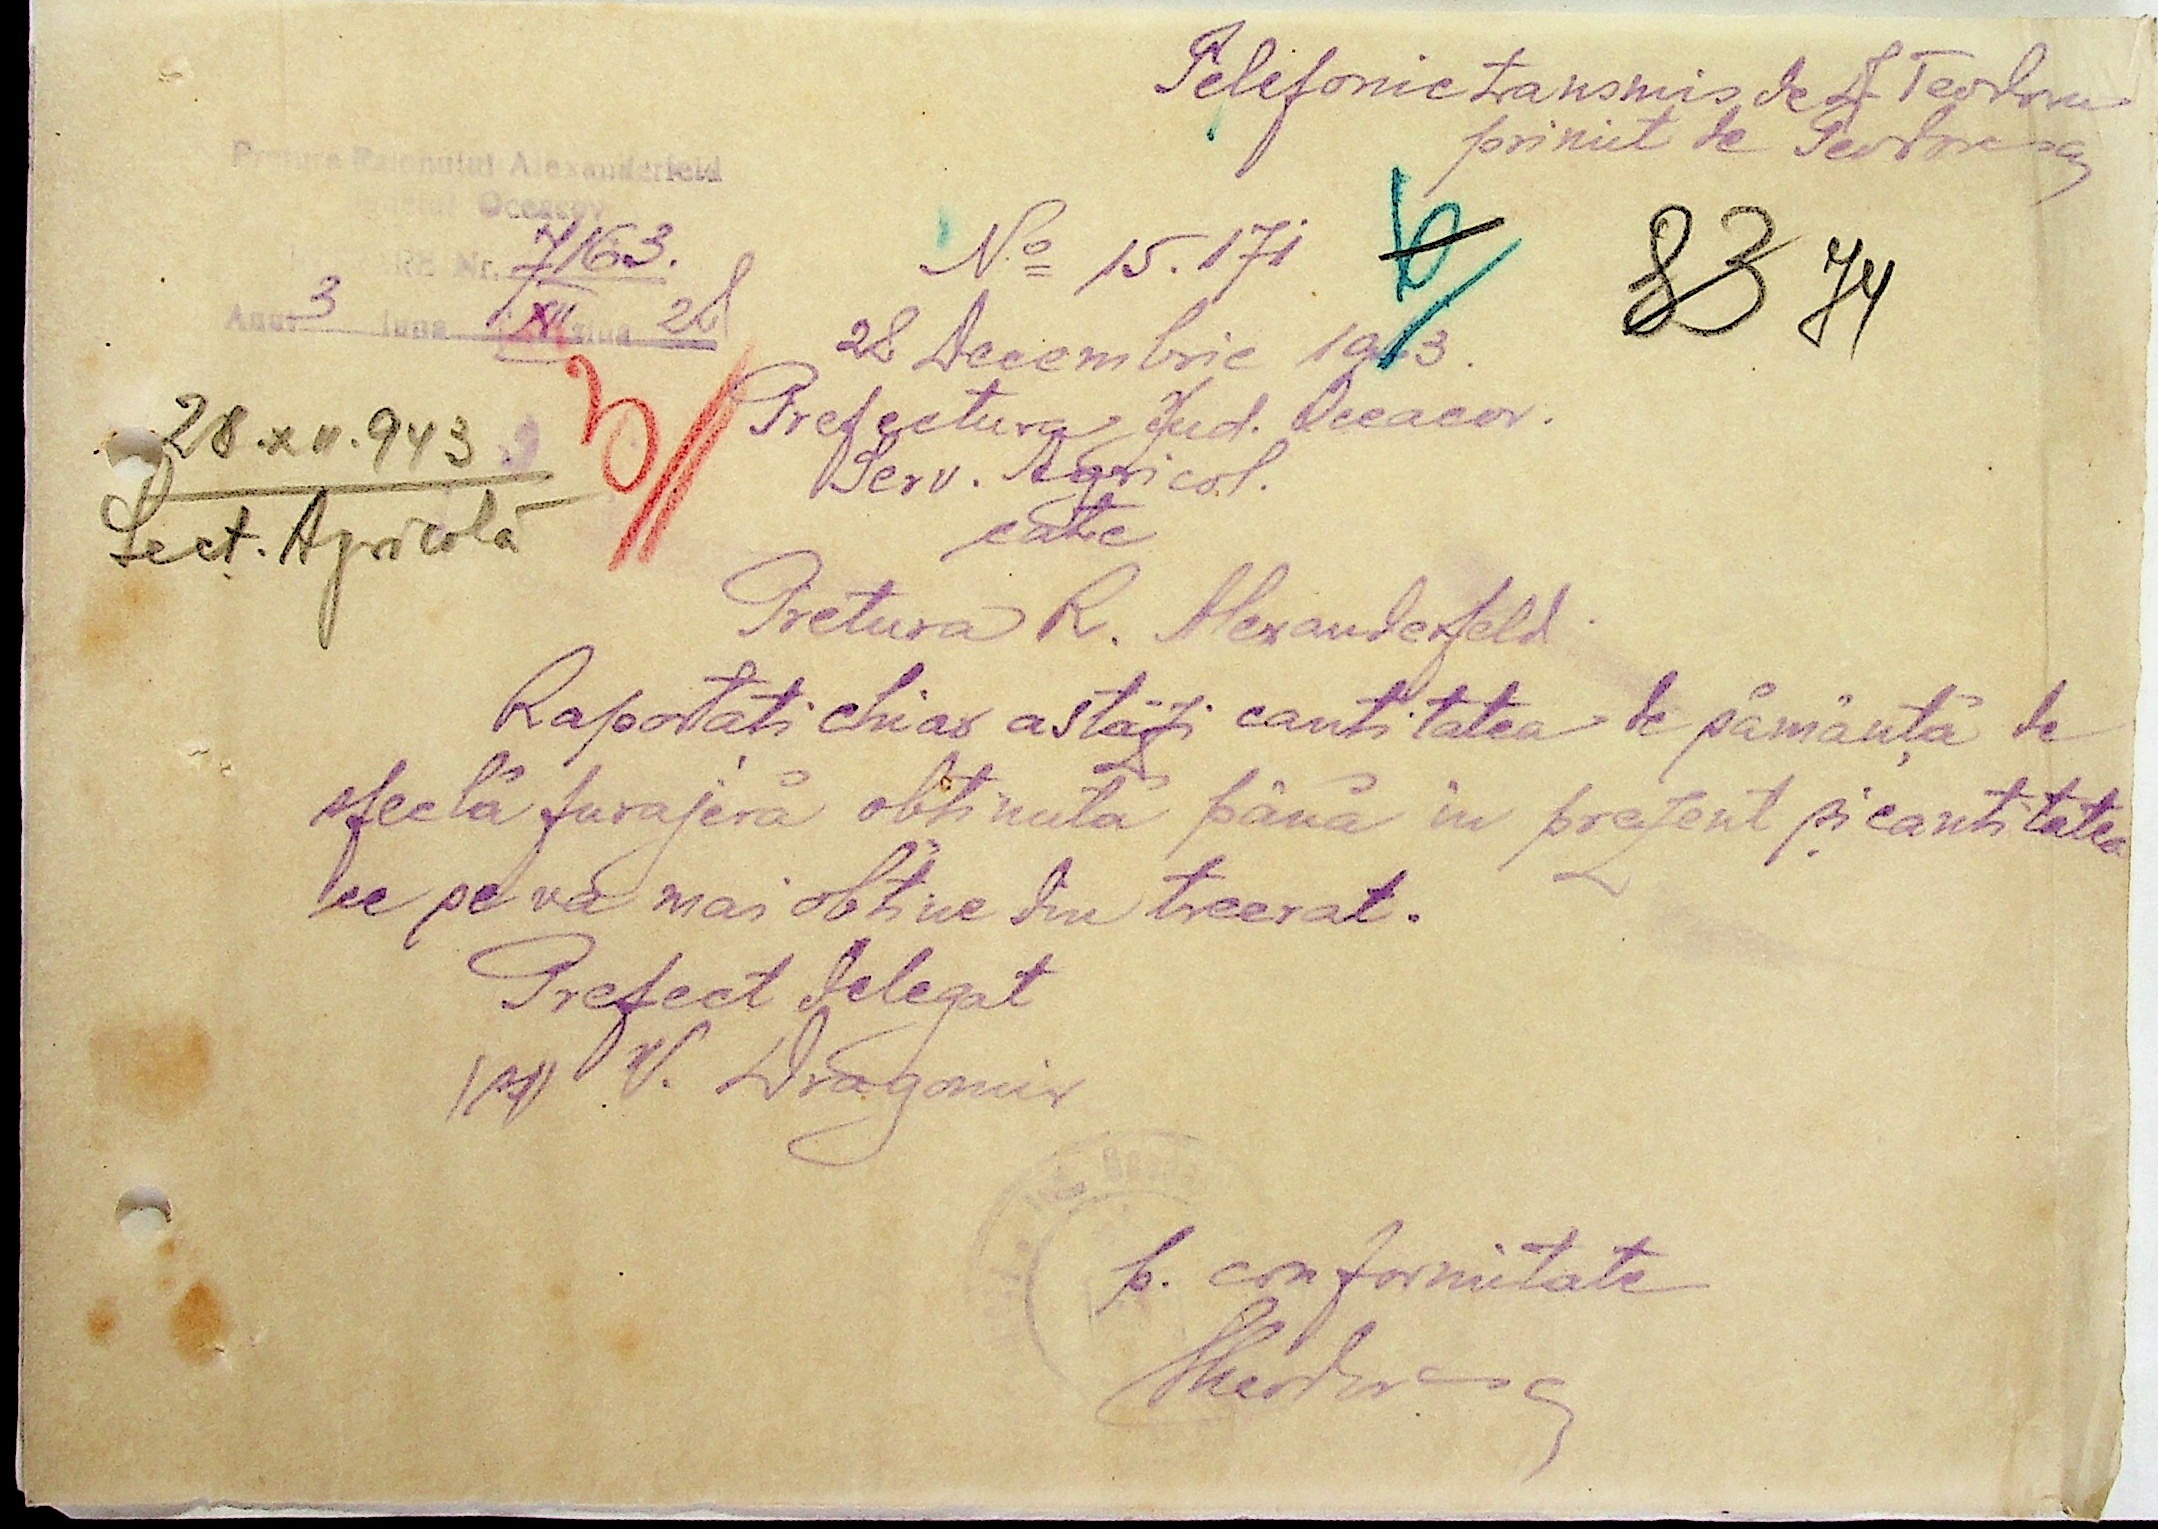 Telefonic transmis de Teodoru
primit de Teodorescu
Pretura Raionului Alexanderfeld
Oceacov
Nr. 7163.
Anul 3 luna XII ziua 28
No 15.171
83 74
28 Decembrie 1943.
28.XII.943
Sect. Agricolă
Prefectura Jud. Oceacov.
Serv. Agricol.
catre
Pretura R. Alexanderfeld
Raportati chiar astăzi cantitatea de sămânță de
sfeclă furajeră obtinută până in prezent și cantitatea
ce se va mai obtine din treerat.
Prefect delegat
(ss) V. Dragomir
p. conformitate